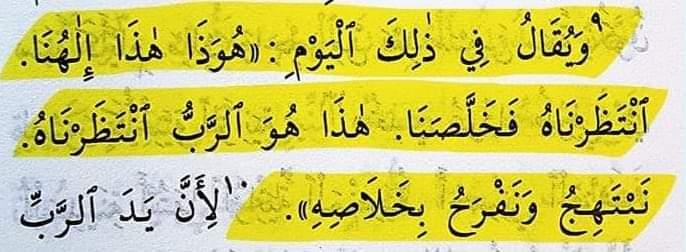 ٩وَيُقَالُ فِي ذٰلِكَ ٱلْيَوْمِ: «هُوَذَا هٰذَا إِلٰهُنَا.
ٱنْتَظَرْنَاهُ فَخَلَّصَنَا. هٰذَا هُوَ ٱلرَّبُّ ٱنْتَظَرْنَاهُ.
نَبْتَهِجُ وَنَفْرَحُ بِخَلَاصِهِ». ١٠لِأَنَّ يَدَ ٱلرَّبِّ